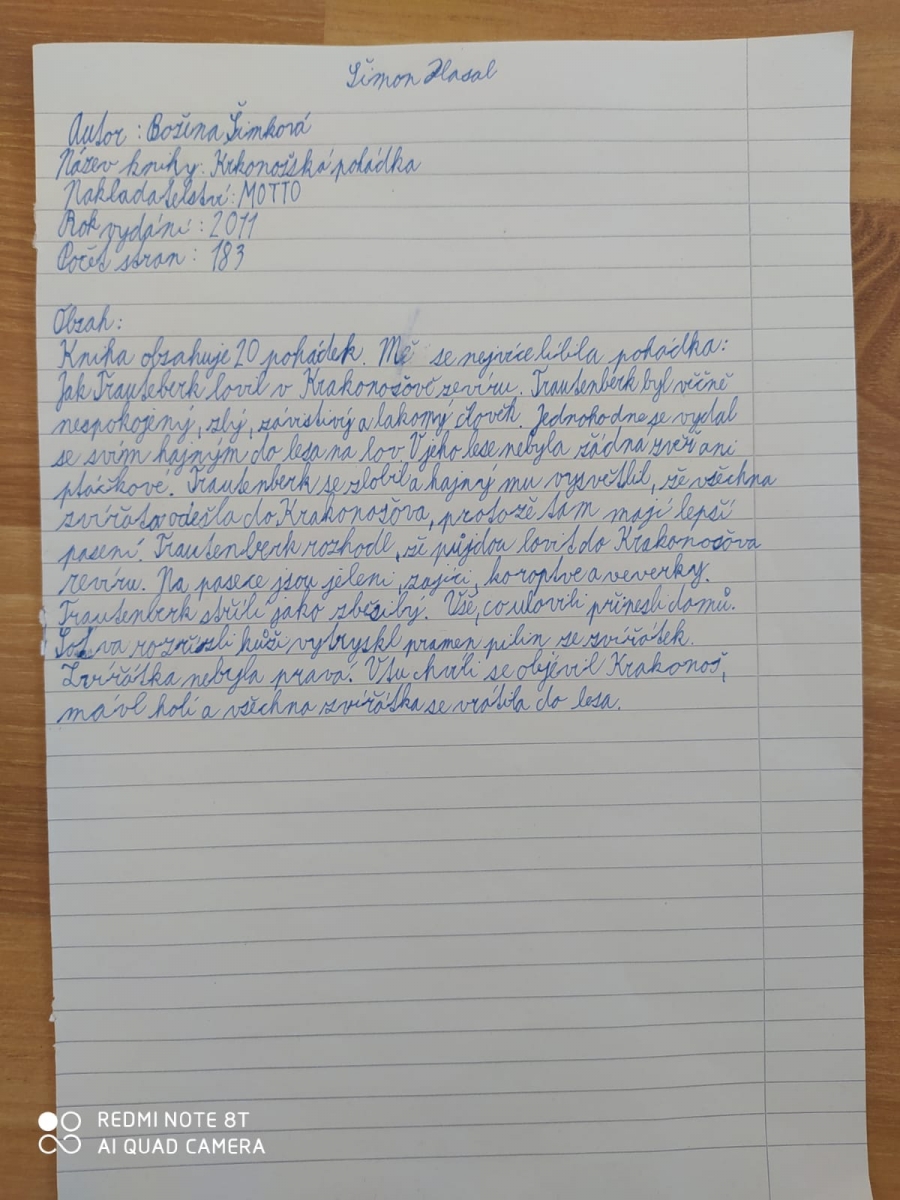 Šimon Hasal
Autor : Božena Šimková
Název knihy: Krkonošská pohádka
Nakladatelství: MOTTO
Rok vydání : 2011
Počet stran : 183
Obsah:
Kniha obsahuje 20 pohádek. Mě se nejvíce líbila pohádka:
Jak Trauteberk lovil v Krakonošově revíru. Trautenberk byl věčně
nespokojený, zlý, závistivý a lakomý člověk. Jednoho dne se vydal
se svím hajným do lesa na lov V jeho lese nebyla žádná zvěř ani
ptáčkové. Trautenberk se zlobil a hajný mu vysvětlil, že všechna
zvířáta odešla do Krakonošova, protože tam mají lepší
pasení. Trautenberk rozhodl, že půjdou lovit do Krakonošova
revíru. Na pasece jsou jeleni, zajíci, koroptve a veverky.
Trautenberk střílí jako zběsilý. Vše, co ulovili přinesli domů.
Sotva rozřízli kůži vytryskl pramen pilin ze zvířátek.
Zvířátka nebyla pravá. V tu chvíli se objevil Krakonoš,
mávl holí a všechna zvířátka se vrátila do lesa.
REDMI NOTE 8T
AI QUAD CAMERA